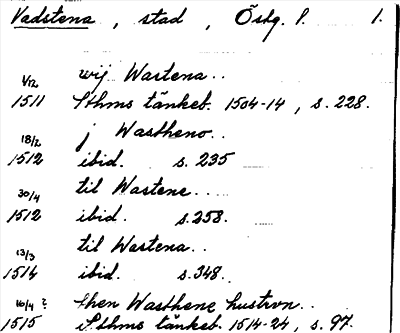 Vadstena, stad, Östg. l. 1.
1/12 wij Wastena..
1511 Sthms tänkeb. 1504-14, s. 228.
18/2 j Wastheno..
1512 ibid. s. 235
30/4 til Wastene...
1512 ibid. s. 258.
13/3 til Wastena..
1514 ibid. s. 348.
10/4 ? then Wasthene hustrvn..
1515 Sthms tänkeb. 1514-24, s. 97.